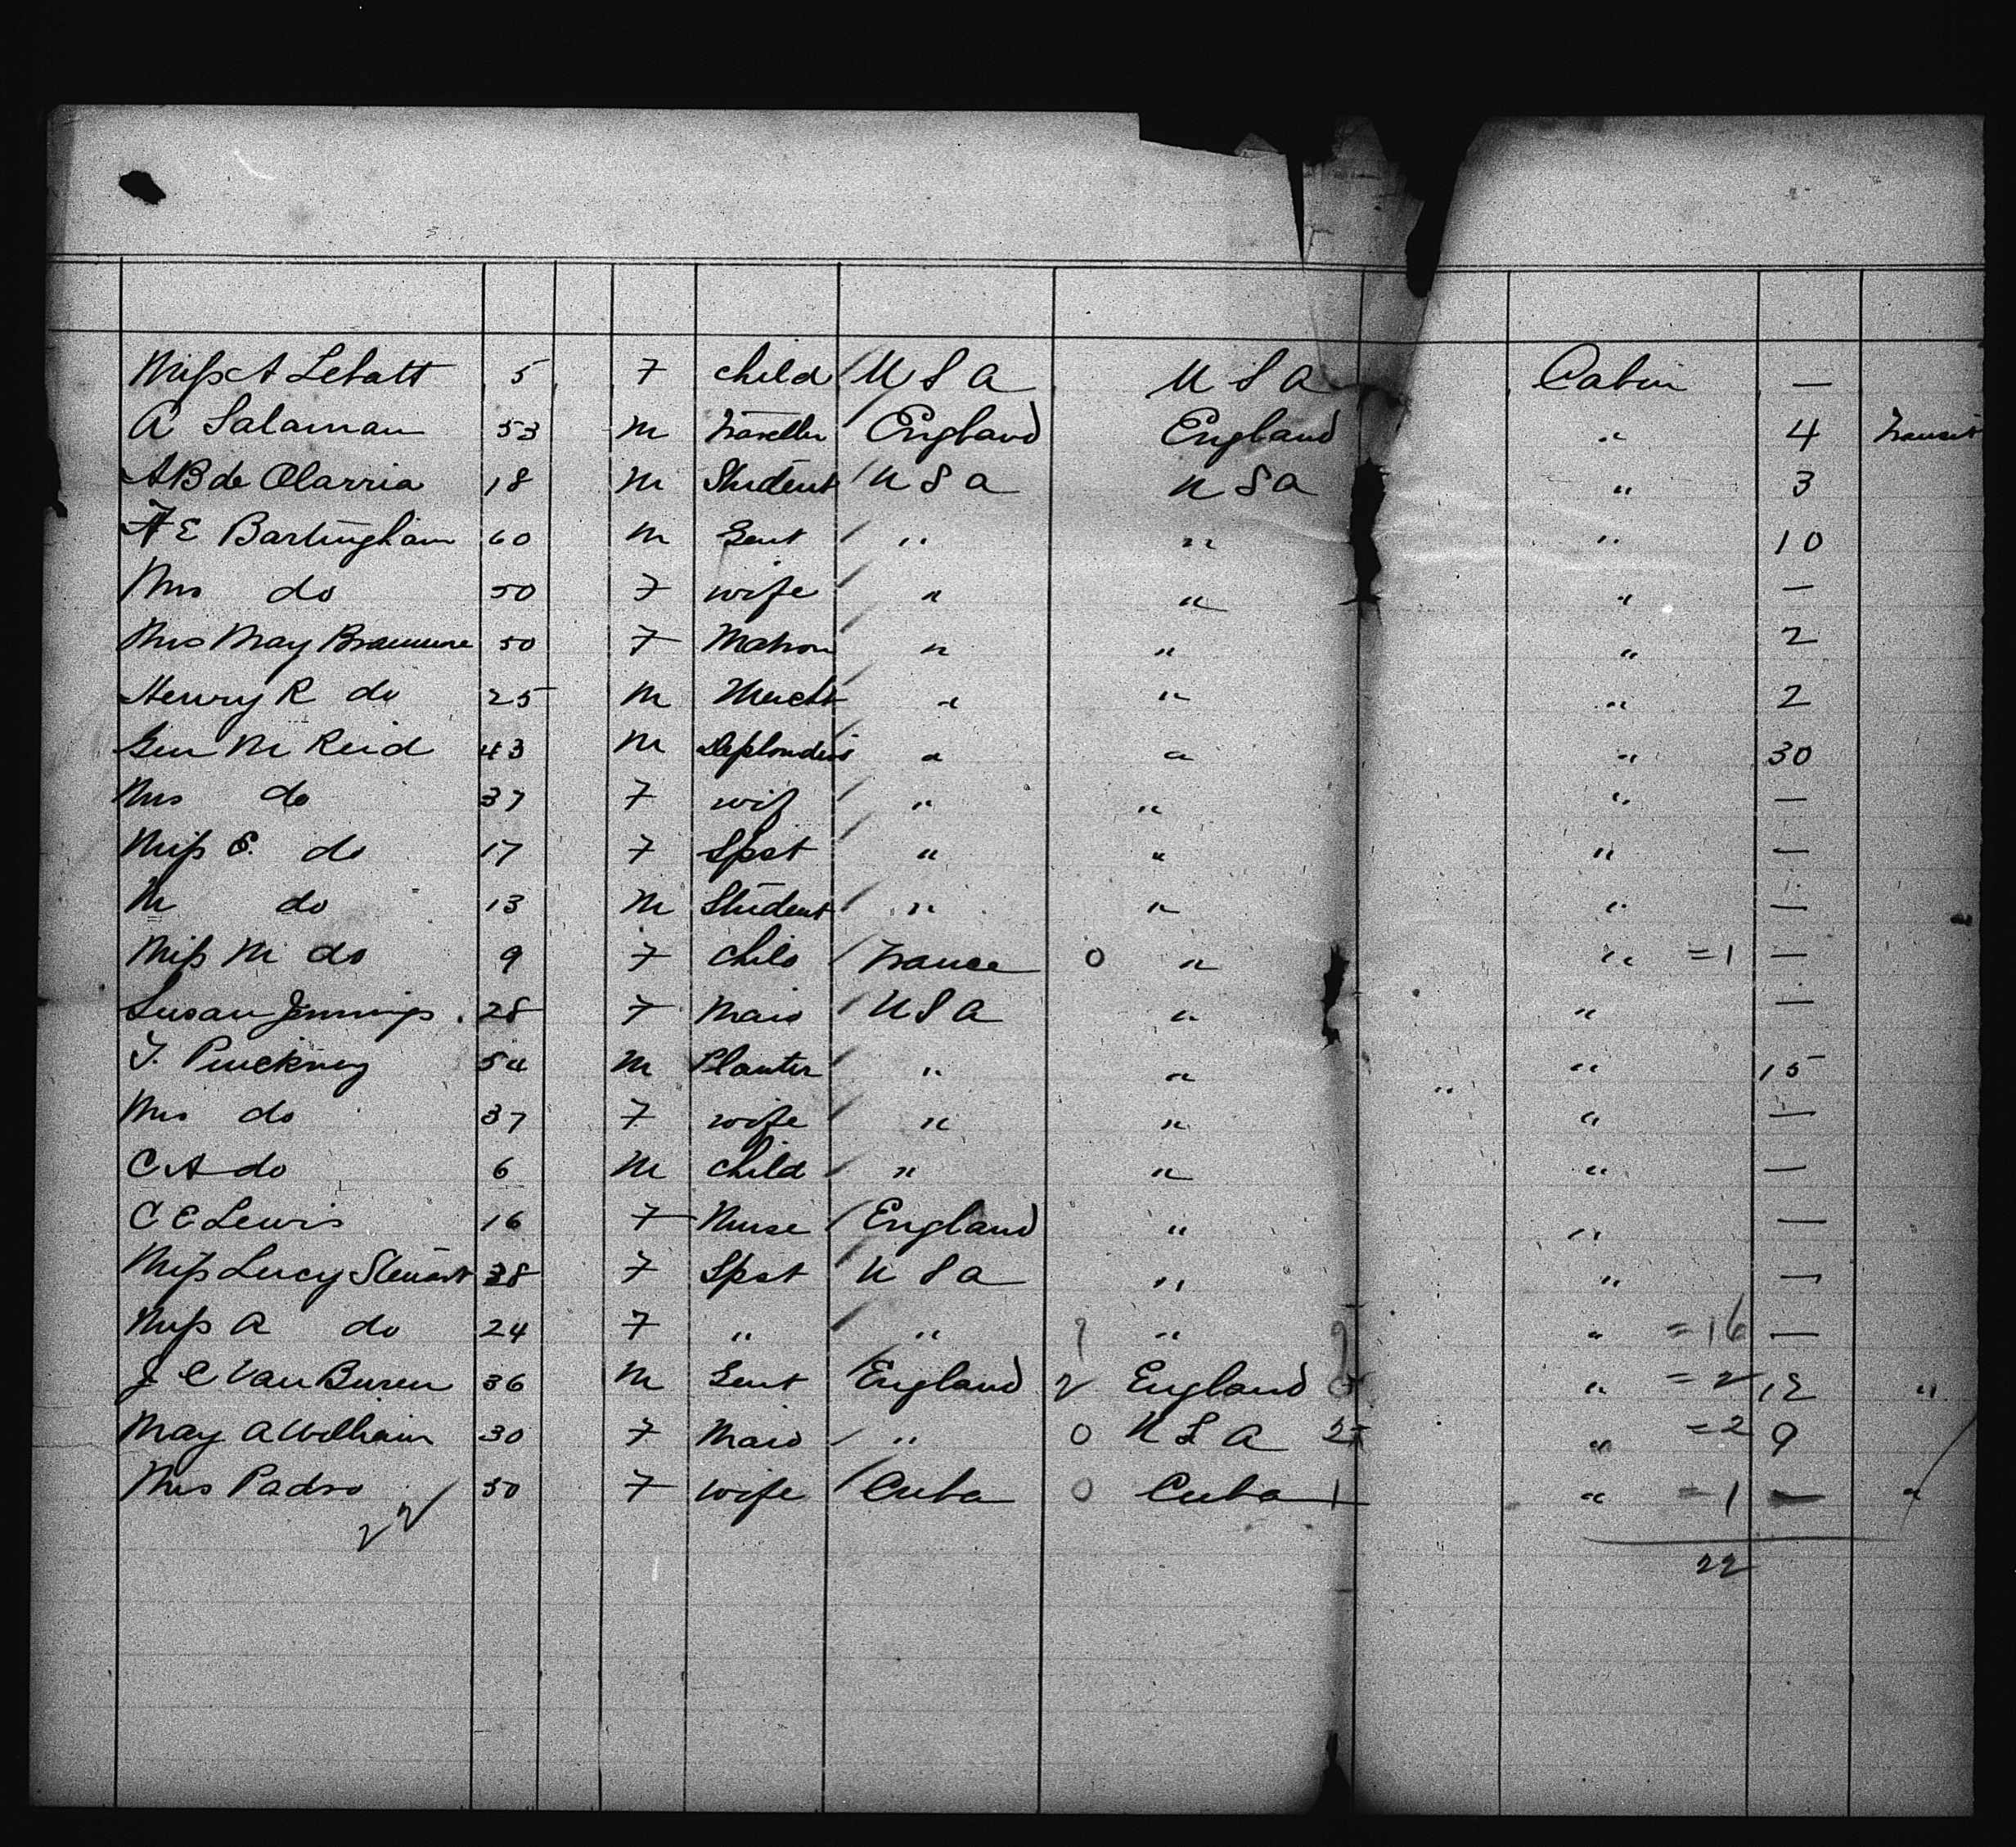 Miss A Lebatt 5 F child U S A U S A Cabin —
A Salaman 53 M Traveller England England " 4 Transit
A B de Olarria 18 M Student U S A U S A " 3
60 M Gent " " " 10
Mrs do 50 F wife " " " —
Mrs May 50 F Matron " " " 2
Henry R do 25 M Mercht " " " 2
M Reid 43 M " " " 30
Mrs do 37 F wif " " " —
Miss E. do 17 F Spst " " " —
M do 13 M Student " " " —
Miss M do 9 F child France 0 " " =1 —
Susan Jennings 28 F Maid U S A " " —
T. Pinckney 54 M Planter " " " 15
Mrs do 37 F wife " " " —
C A do 6 M child " " " —
C E Lewis 16 F Nurse England " " —
Miss Lucy Steuart 38 F Spst U S A " " —
Miss A do 24 F " " " " =16 —
J C Van Buren 36 M Gent England 2 England " =2 12 "
May A William 30 F Maid " 0 U S A 2 " =2 9
Mrs Padro 50 F wife Cuba 0 Cuba 1 " =1 — "
22 22